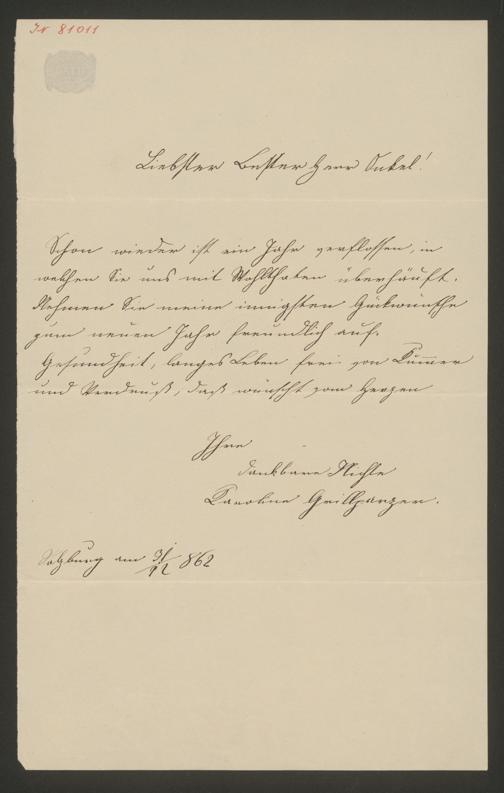 IN 81011
Liebster Bester Herr Onkel!
Schon wieder ist ein Jahr verflossen, in
welchen Sie uns mit Wohlthaten überhäuft.
Nehmen Sie meine innigsten Glückwünsche
zum neuen Jahr freundlich auf.
Gesundheit, langes Leben frei von Kummer
und Verdruß, daß wünscht vom Herzen
Ihre
dankbare Nichte
Karoline Grillparzer.
Salzburg am 31/12 862